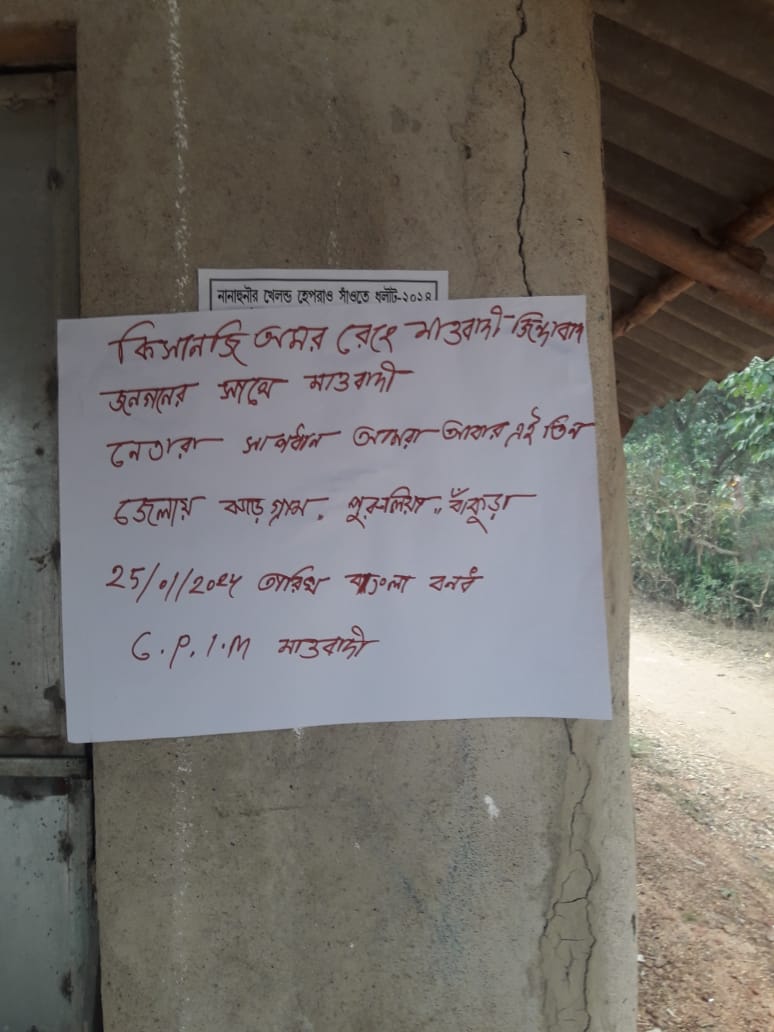 নানাহুনীর খেলন্ড হেপরাও সাঁওতে ধলাঁট-২০২৪
কিসানজি অমর রেহে মাওবাদী জিন্দাবাদ
জনগনের সাথে মাওবাদী
নেতারা সাবধান আমরা আবার এই তিন
জেলায় ঝাড়গ্রাম. পুরুলিয়া.. বাঁকুড়া
25/01/2025 তারিখ বাংলা বনধ
C.P.I.M মাওবাদী